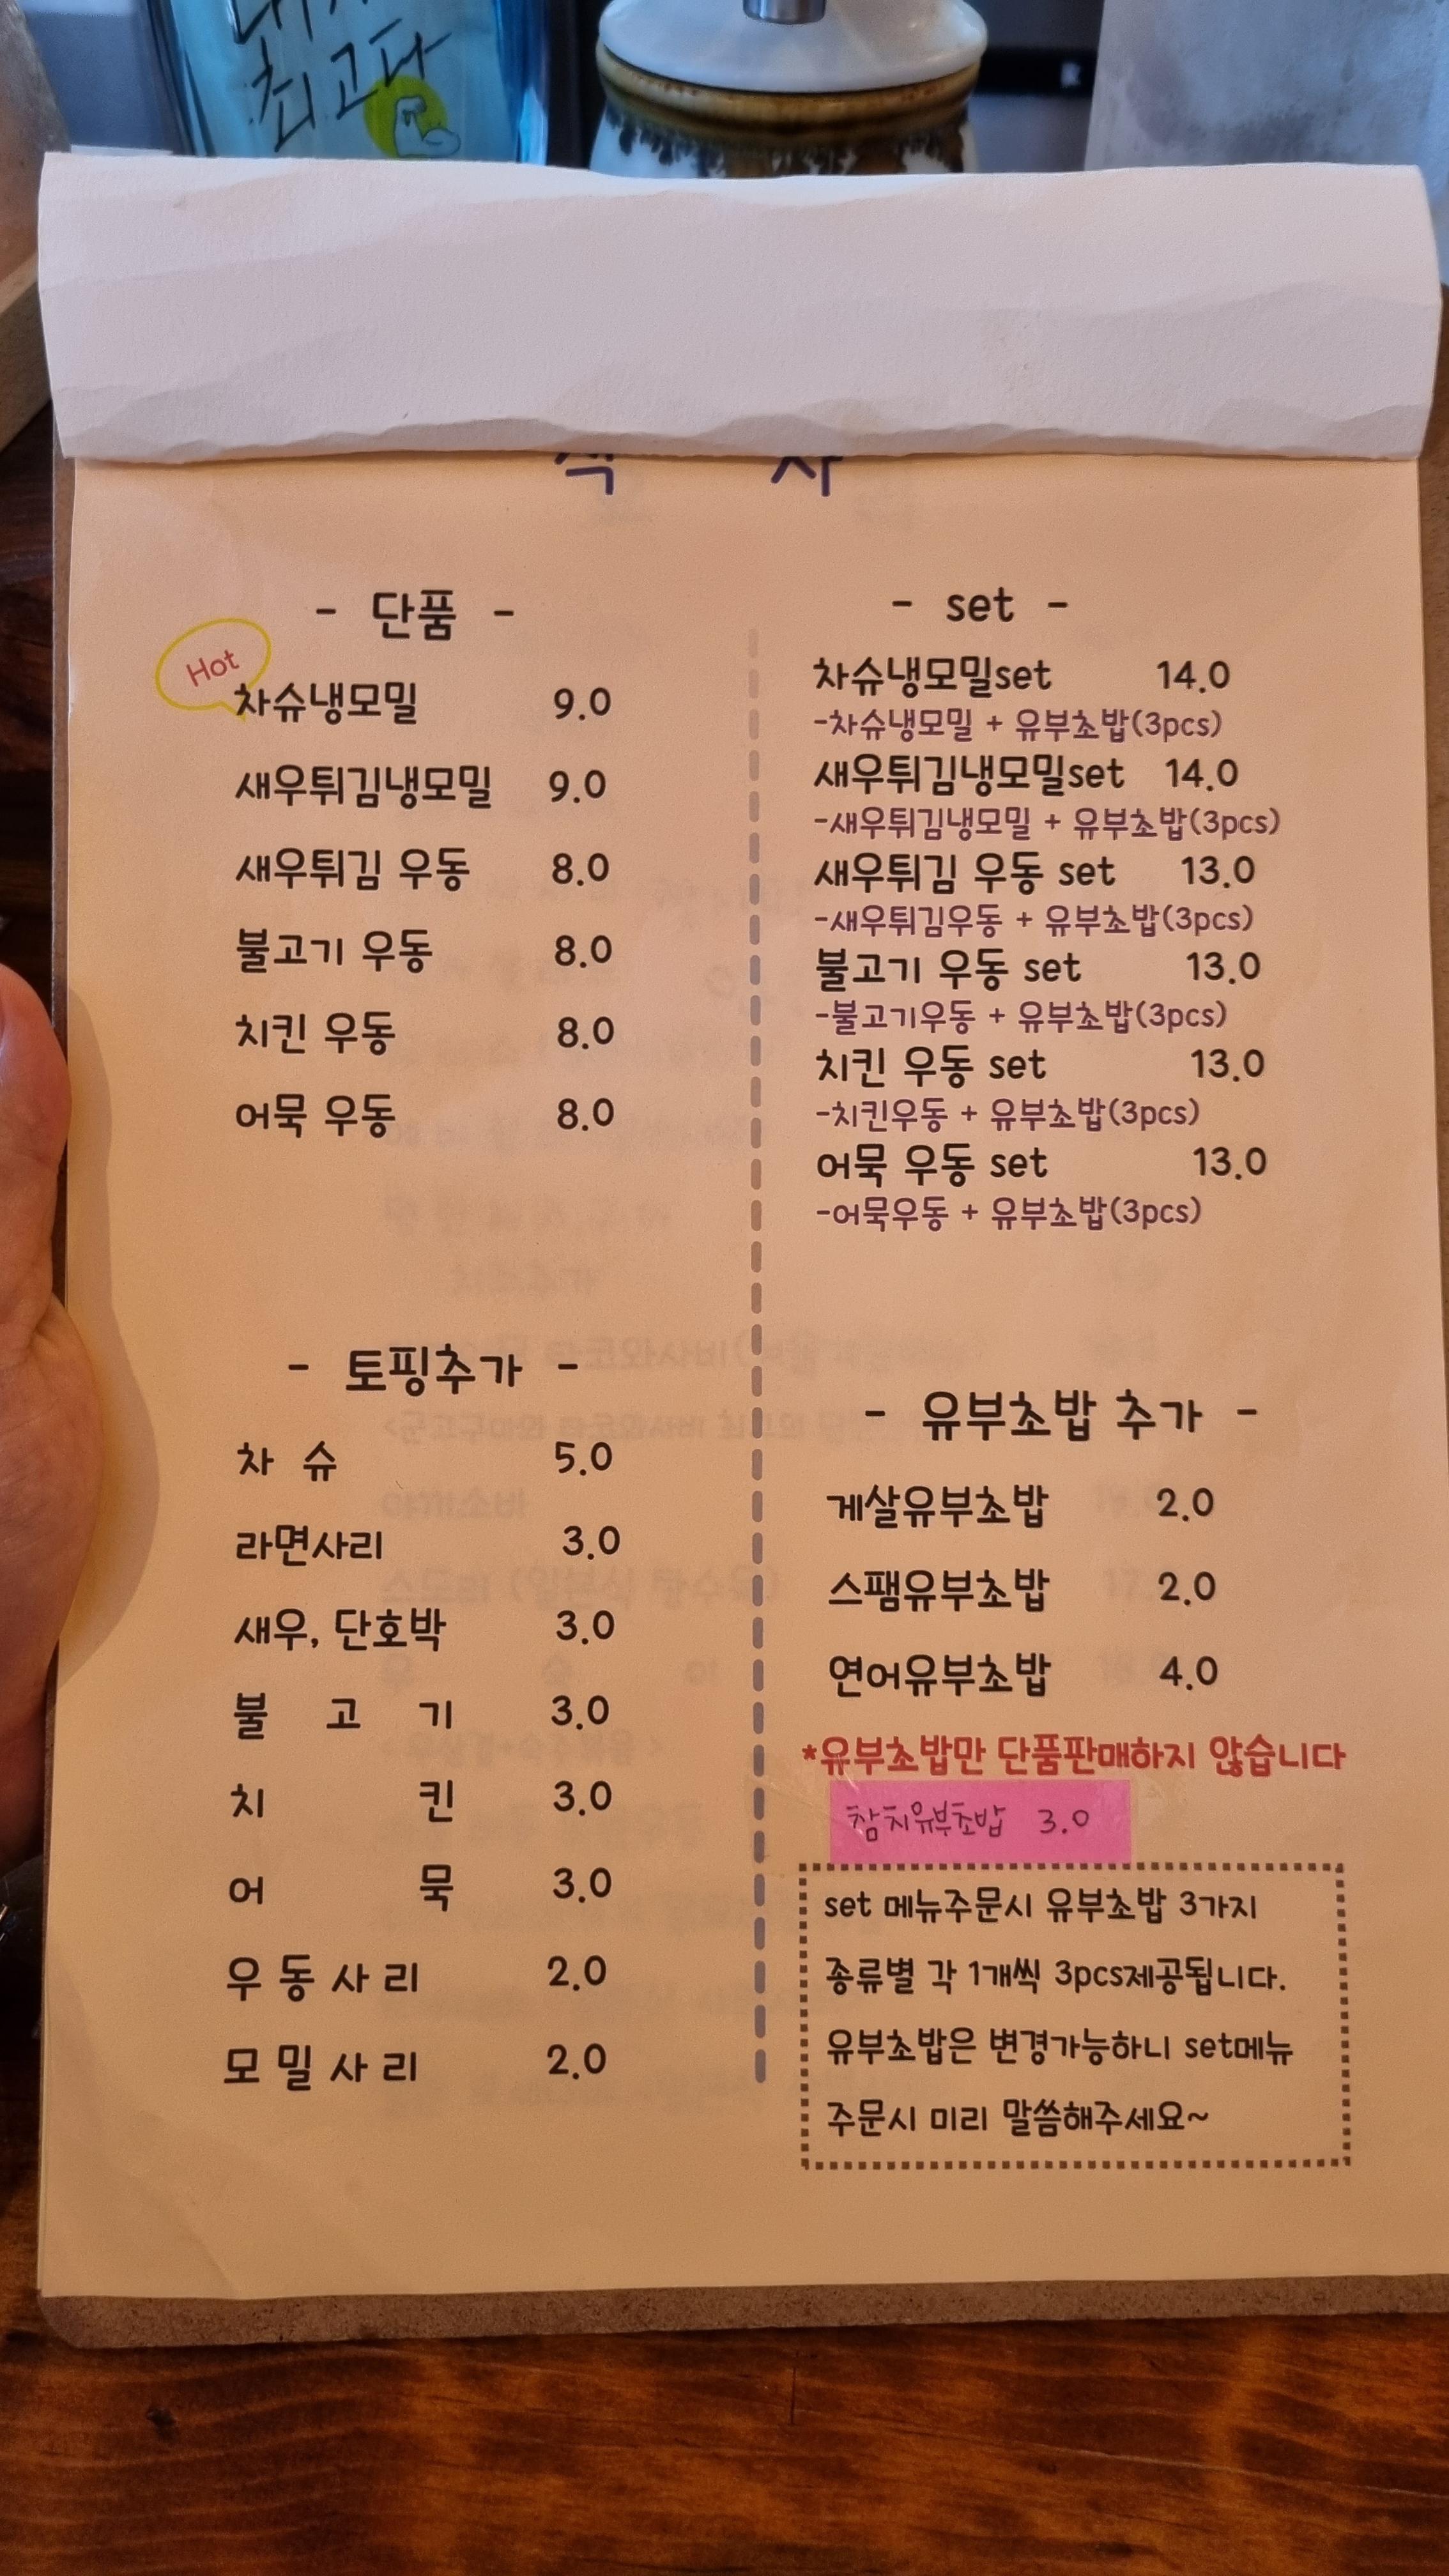 최고다
식 사
- 단품 -
Hot
차슈냉모밀 9.0
새우튀김냉모밀 9.0
새우튀김 우동 8.0
불고기 우동 8.0
치킨 우동 8.0
어묵 우동 8.0
- set -
차슈냉모밀set 14.0
-차슈냉모밀 + 유부초밥(3pcs)
새우튀김냉모밀set 14.0
-새우튀김냉모밀 + 유부초밥(3pcs)
새우튀김 우동 set 13.0
-새우튀김우동 + 유부초밥(3pcs)
불고기 우동 set 13.0
-불고기우동 + 유부초밥(3pcs)
치킨 우동 set 13.0
-치킨우동 + 유부초밥(3pcs)
어묵 우동 set 13.0
-어묵우동 + 유부초밥(3pcs)
- 토핑추가 -
차 슈 5.0
라면사리 3.0
새우, 단호박 3.0
불 고 기 3.0
치 킨 3.0
어 묵 3.0
우 동 사 리 2.0
모 밀 사 리 2.0
- 유부초밥 추가 -
게살유부초밥 2.0
스팸유부초밥 2.0
연어유부초밥 4.0
*유부초밥만 단품판매하지 않습니다
참치유부초밥 3.0
set 메뉴주문시 유부초밥 3가지
종류별 각 1개씩 3pcs제공됩니다.
유부초밥은 변경가능하니 set메뉴
주문시 미리 말씀해주세요~